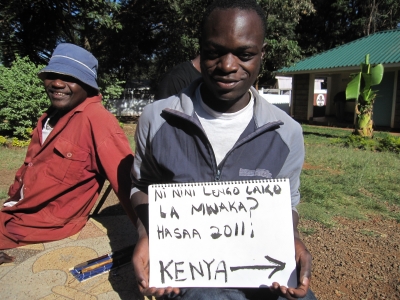 NI NINI LENGO LAKO
LA MWAKA?
HASAA 2011!
KENYA →